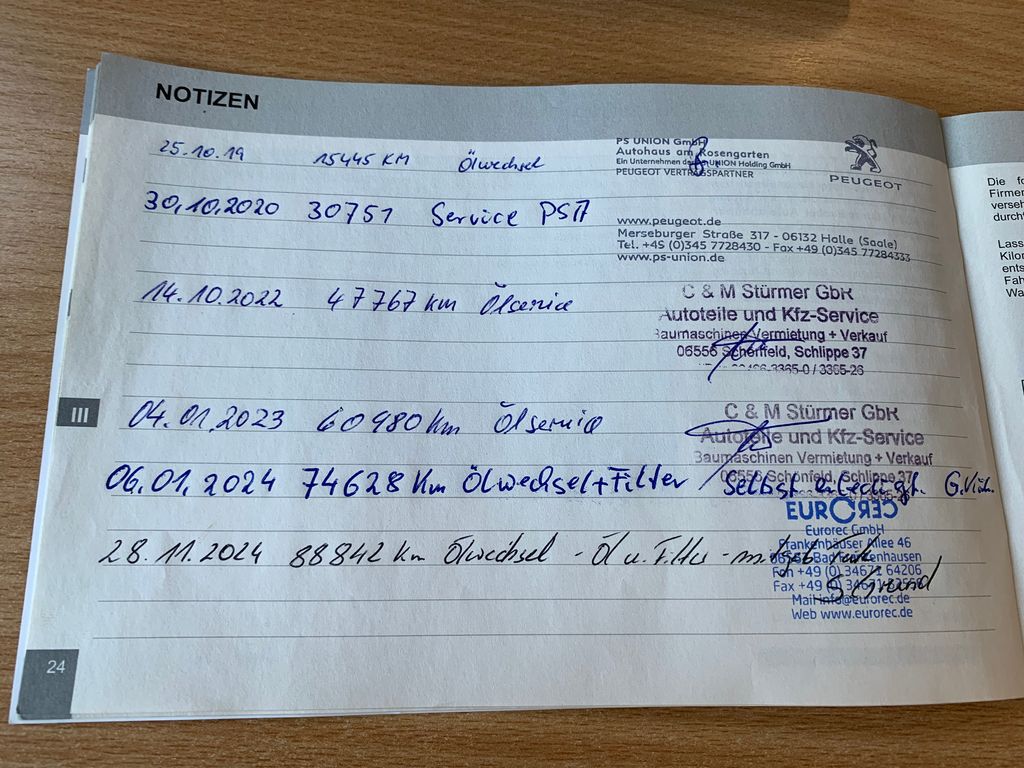 NOTIZEN
25.10.19 15445 KM Ölwechsel
PS UNION GmbH
Autohaus am Rosengarten
Ein Unternehmen der PS UNION Holding GmbH
PEUGEOT VERTRAGSPARTNER
PEUGEOT
30.10.2020 30751 Service PSA
www.peugeot.de
Merseburger Straße 317 - 06132 Halle (Saale)
Tel. +49 (0)345 7728430 - Fax +49 (0)345 77284333
www.ps-union.de
14.10.2022 47767 km Ölservice
C & M Stürmer GbR
Autoteile und Kfz-Service
Baumaschinen Vermietung + Verkauf
06556 Schönfeld, Schlippe 37
3365-0 / 3365-26
III
04.01.2023 60980 km Ölservice
C & M Stürmer GbR
Autoteile und Kfz-Service
Baumaschinen Vermietung + Verkauf
06556 Schönfeld, Schlippe 37
06.01.2024 74628 Km Ölwechsel+Filter selbst erledigt. G.
EUROREC
Eurorec GmbH
Frankenhäuser Allee 46
Bad Frankenhausen
Fon +49 (0) 34671 64206
Fax +49 (0) 34671
Mail info@eurorec.de
Web www.eurorec.de
28.11.2024 88842 km Ölwechsel - Öl u. Filter -
24
Die
Firmen
verse
durch
Lass
Kilon
ents
Fah
Wa